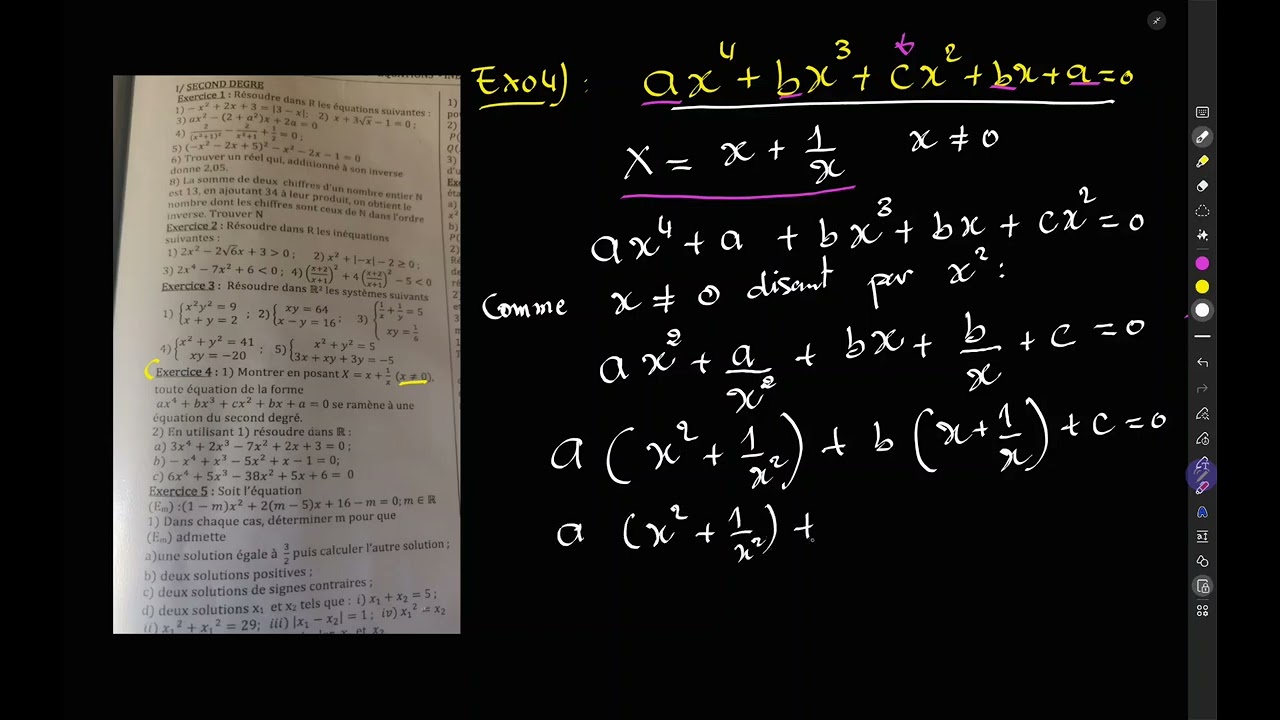 I/ SECOND DEGRE
Exercice 1 : Résoudre dans R les équations suivantes :
1) −x² + 2x + 3 = |3 − x|; 2) x + 3√x − 1 = 0 ;
3) ax² − (2 + a²)x + 2a = 0
4) 2/(x²+1)² − 2/(x²+1) + 1/2 = 0 ;
5) (−x² − 2x + 5)² − x² − 2x − 1 = 0
6) Trouver un réel qui, additionné à son inverse
donne 2,05.
8) La somme de deux chiffres d'un nombre entier N
est 13, en ajoutant 34 à leur produit, on obtient le
nombre dont les chiffres sont ceux de N dans l'ordre
inverse. Trouver N
Exercice 2 : Résoudre dans R les inéquations
suivantes :
1) 2x² − 2√6x + 3 > 0 ; 2) x² + |−x| − 2 ≥ 0 ;
3) 2x⁴ − 7x² + 6 < 0 ; 4) ((x+2)/(x+1))² + 4((x+2)/(x+1))² − 5 < 0
Exercice 3 : Résoudre dans ℝ² les systèmes suivants
1) {x²y² = 9 ; x + y = 2 ; 2) {xy = 64 ; x − y = 16 ; 3) {1/x + 1/y = 5 ; xy = 1/6
4) {x² + y² = 41 ; xy = −20 ; 5) {x² + y² = 5 ; 3x + xy + 3y = −5
Exercice 4 : 1) Montrer en posant X = x + 1/x (x ≠ 0),
toute équation de la forme
ax⁴ + bx³ + cx² + bx + a = 0 se ramène à une
équation du second degré.
2) En utilisant 1) résoudre dans ℝ :
a) 3x⁴ + 2x³ − 7x² + 2x + 3 = 0 ;
b) −x⁴ + x³ − 5x² + x − 1 = 0;
c) 6x⁴ + 5x³ − 38x² + 5x + 6 = 0
Exercice 5 : Soit l'équation
(Eₘ) :(1 − m)x² + 2(m − 5)x + 16 − m = 0; m ∈ ℝ
1) Dans chaque cas, déterminer m pour que
(Eₘ) admette
a)une solution égale à 3/2 puis calculer l'autre solution ;
b) deux solutions positives ;
c) deux solutions de signes contraires ;
d) deux solutions x₁ et x₂ tels que : i) x₁ + x₂ = 5 ;
ii) x₁² + x₁² = 29; iii) |x₁ − x₂| = 1 ; iv) x₁² = x₂
Exo4) : ax⁴ + bx³ + cx² + bx + a = 0
X = x + 1/x x ≠ 0
ax⁴ + a + bx³ + bx + cx² = 0
Comme x ≠ 0 disant par x² :
ax² + a/x² + bx + b/x + c = 0
a (x² + 1/x²) + b (x + 1/x) + c = 0
a (x² + 1/x²) +